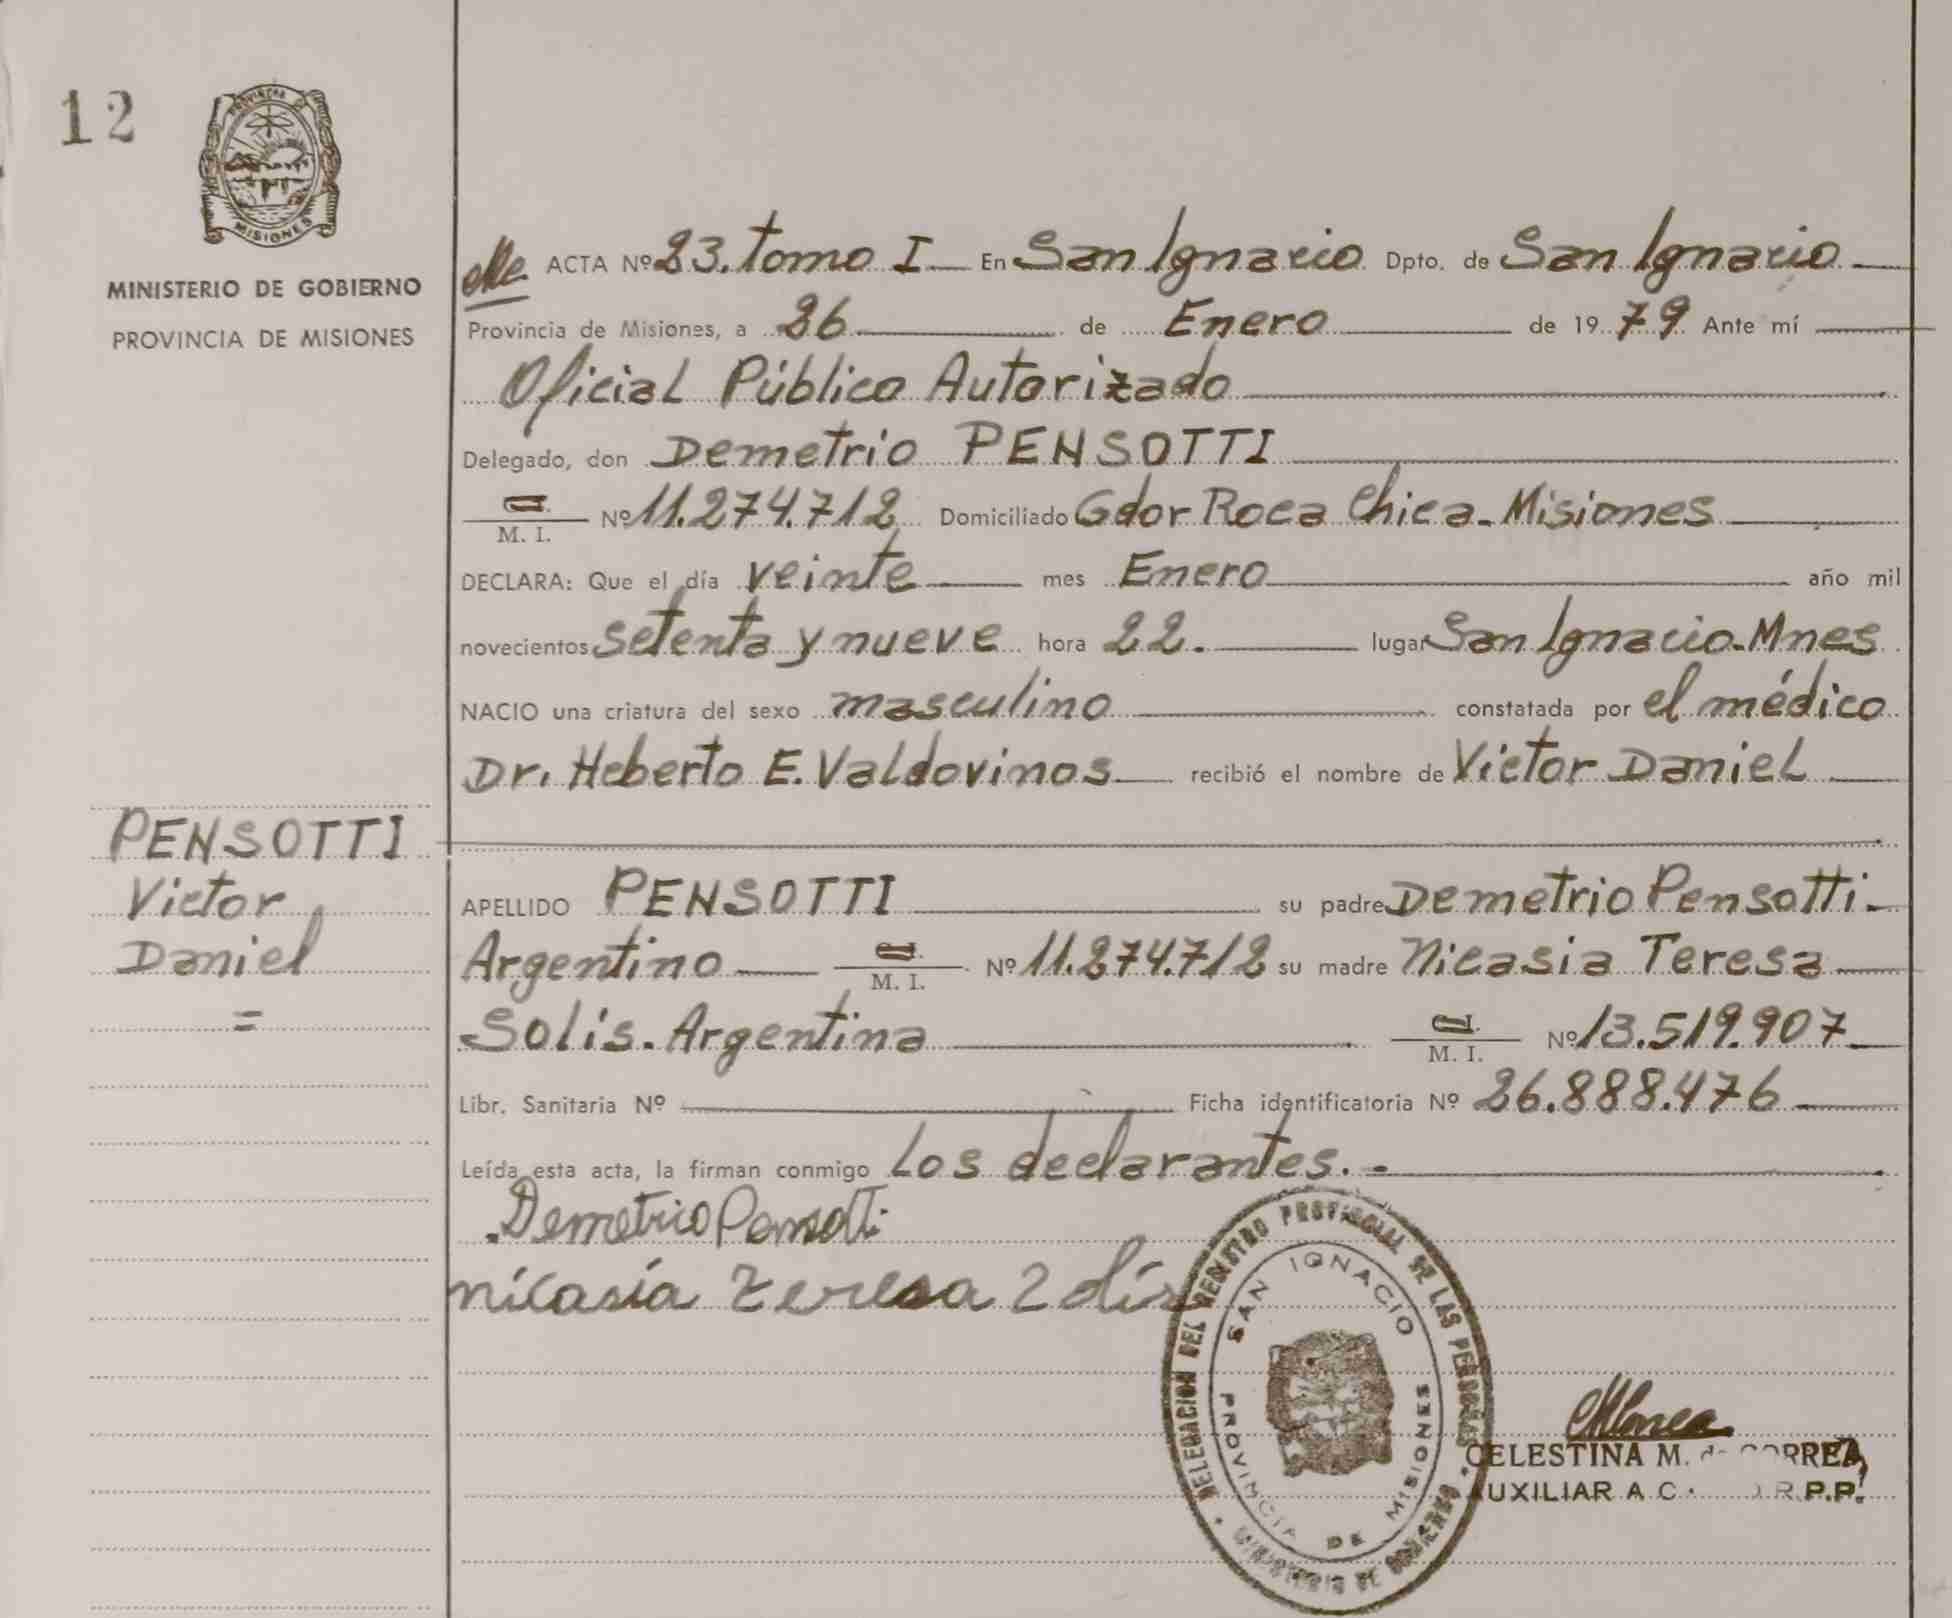 12
PROVINCIA DE
MISIONES
MINISTERIO DE GOBIERNO
PROVINCIA DE MISIONES
ACTA Nº 23. tomo I En San Ignacio Dpto. de San Ignacio
Provincia de Misiones, a 26 de Enero de 1979 Ante mí
Oficial Público Autorizado
Delegado, don Demetrio PENSOTTI
M. I. Nº 11.274.712 Domiciliado Gdor Roca Chica. Misiones
DECLARA: Que el día veinte mes Enero año mil
novecientos setenta y nueve hora 22. lugar San Ignacio. Mnes
NACIO una criatura del sexo masculino constatada por el médico
Dr. Heberto E. Valdovinos recibió el nombre de Victor Daniel
PENSOTTI
Victor
Daniel
=
APELLIDO PENSOTTI su padre Demetrio Pensotti.
Argentino M. I. Nº 11.274.712 su madre Nicasia Teresa
Solis. Argentina M. I. Nº 13.519.907
Libr. Sanitaria Nº Ficha identificatoria Nº 26.888.476
Leída esta acta, la firman conmigo Los declarantes.
Demetrio Pensotti
nicasia teresa Solís
DELEGACION DEL REGISTRO PROVINCIAL DE LAS PERSONAS
SAN IGNACIO
PROVINCIA DE MISIONES
MINISTERIO DE GOBIERNO
CELESTINA M. de CORREA
AUXILIAR A C R.P.P.